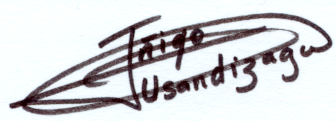 Iñigo
Usandizaga